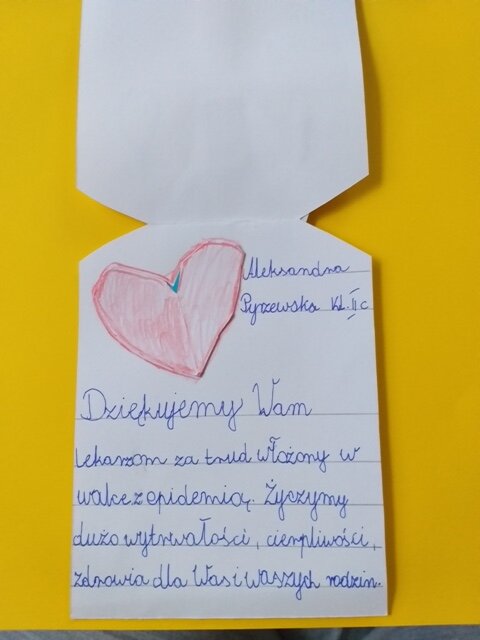 Aleksandra
Pyrzewska kl. II c
Dziękujemy Wam
lekarzom za trud włożony w
walce z epidemią. Życzymy
dużo wytrwałości, cierpliwości,
zdrowia dla Was i waszych rodzin.